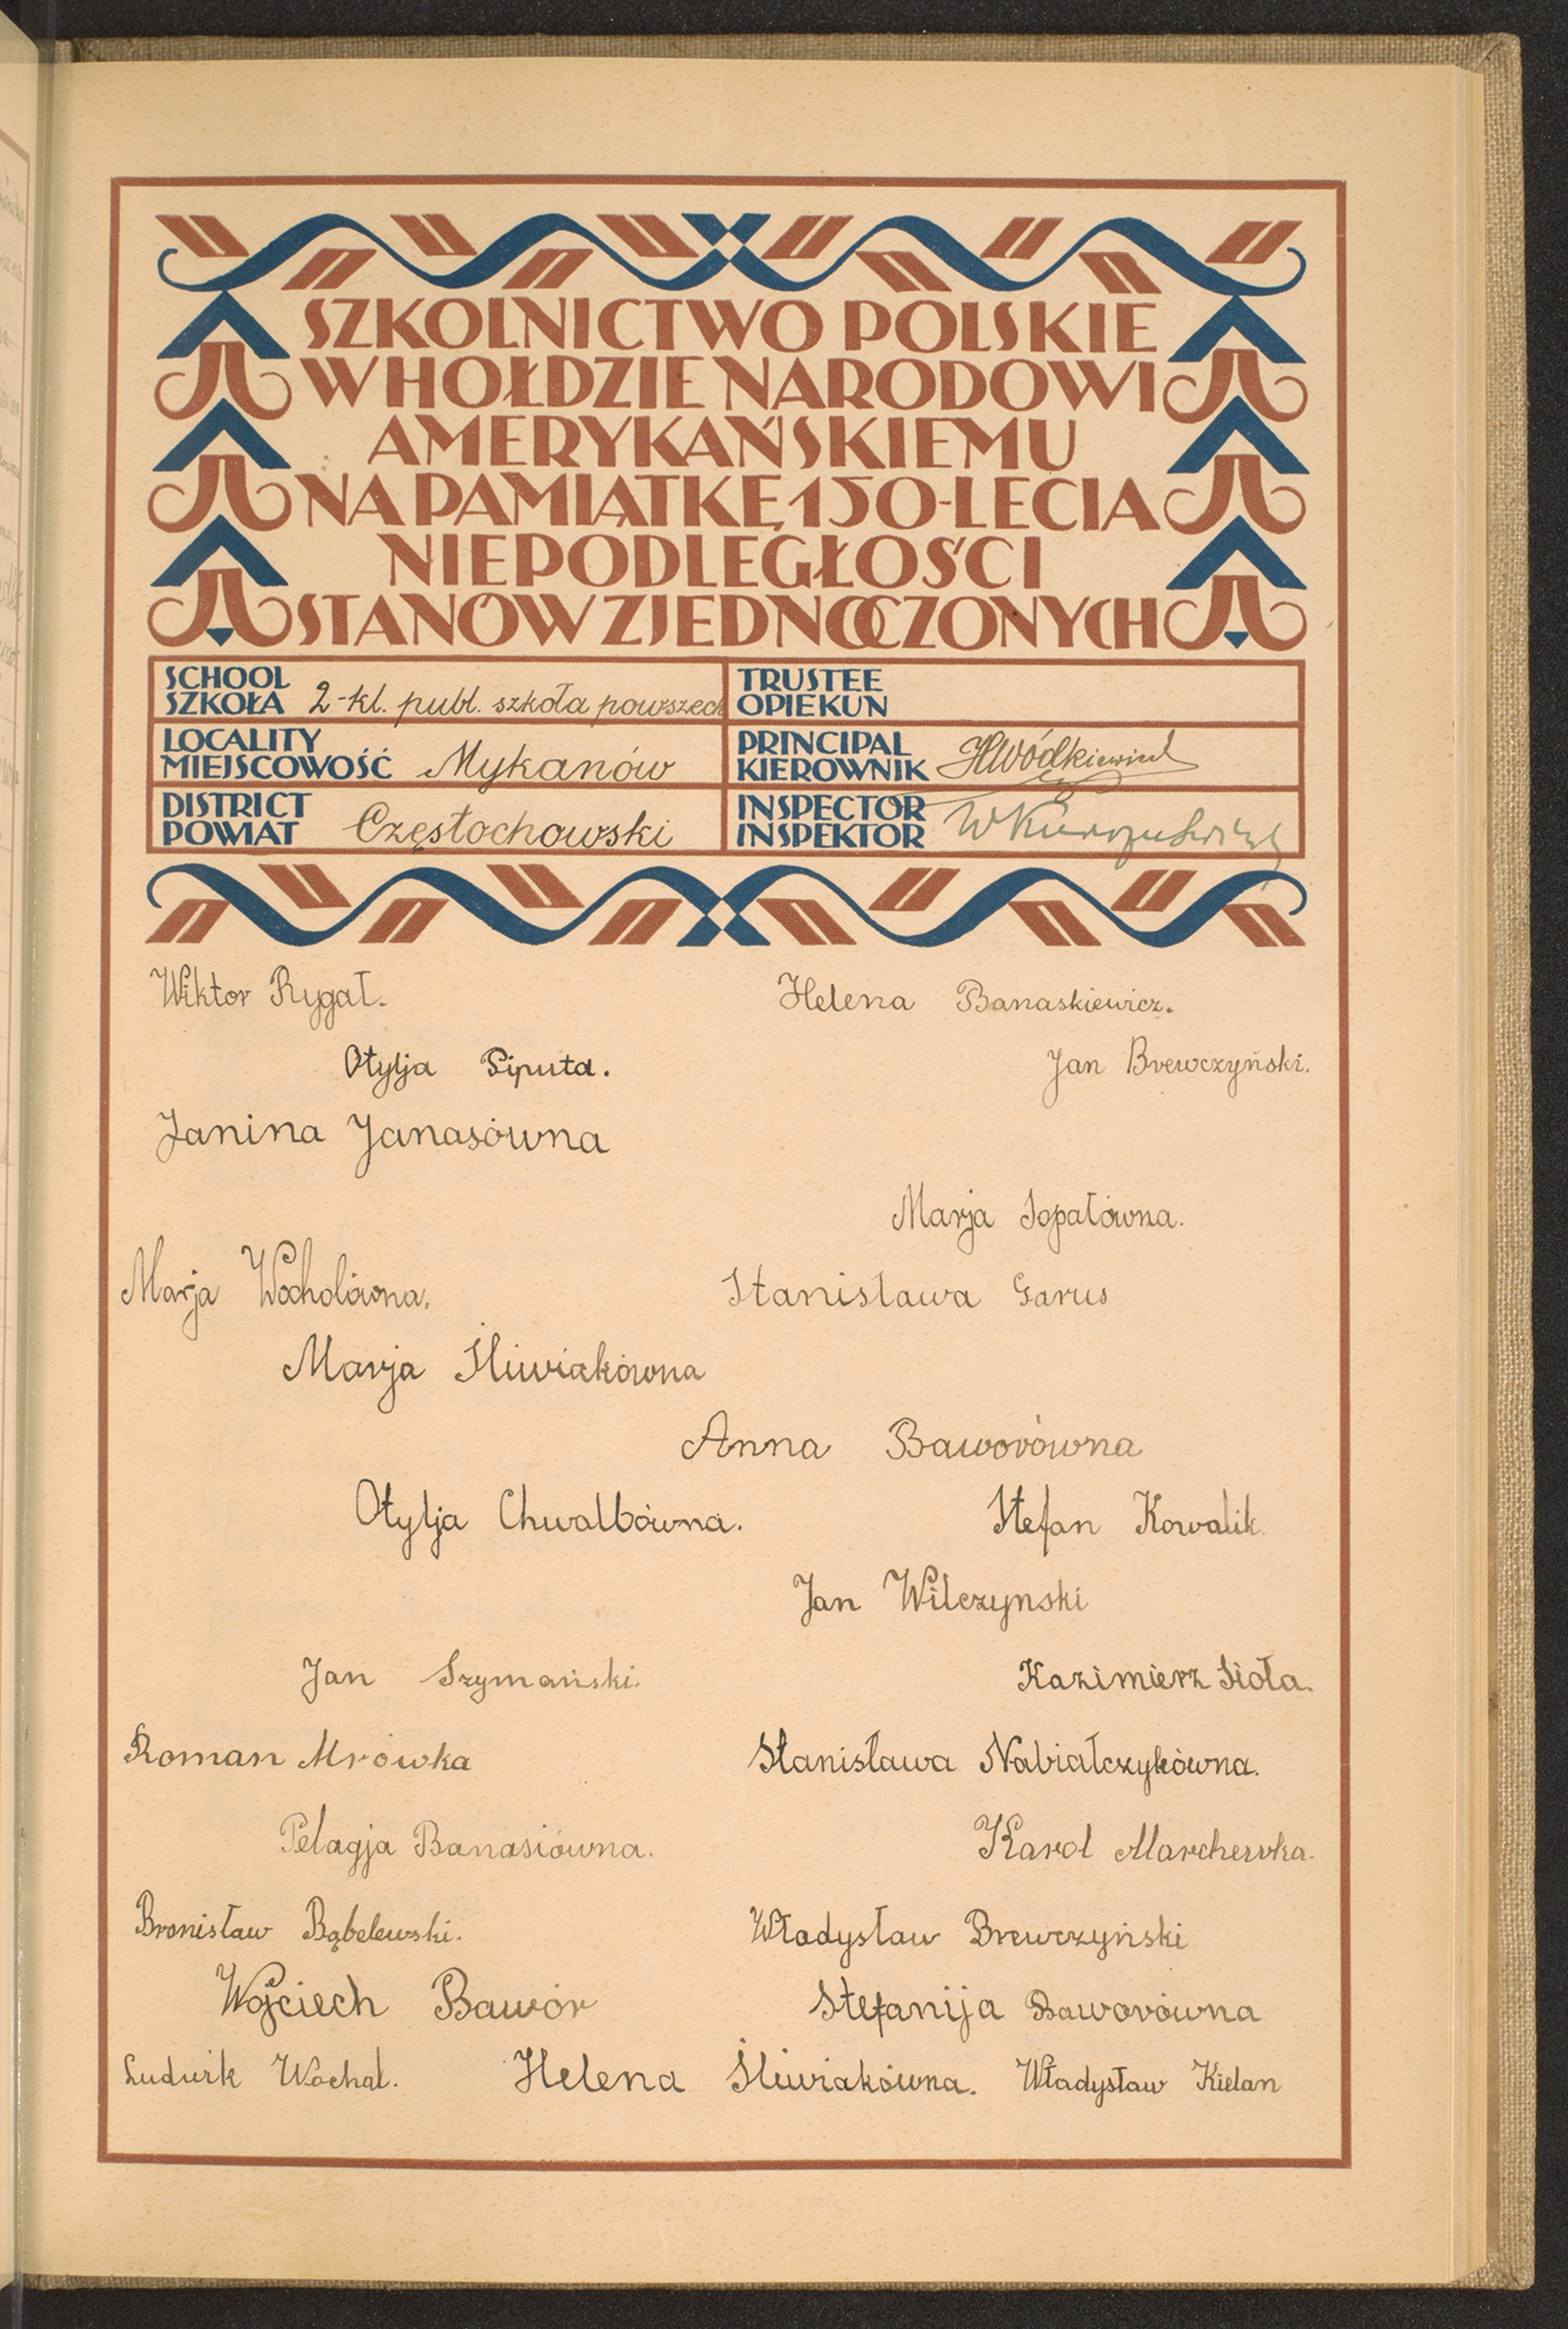 SZKOLNICTWO POLSKIE
W HOŁDZIE NARODOWI
AMERYKAŃSKIEMU
NA PAMIĄTKĘ 150-LECIA
NIEPODLEGŁOŚCI
STANÓW ZJEDNOCZONYCH
SCHOOL
SZKOŁA 2-kl. publ. szkoła powszech
TRUSTEE
OPIEKUN
LOCALITY
MIEJSCOWOŚĆ Mykanów
PRINCIPAL
KIEROWNIK HWódkiewicz
DISTRICT
POWIAT Częstochowski
INSPECTOR
INSPEKTOR
Wiktor Rygał. Helena Banaskiewicz.
Otylja Piputa. Jan Brewczyński.
Janina Janasówna
Marja Sopałówna.
Marja Wocholówna. Stanisława Garus
Marja Śliwiakówna
Anna Baworówna
Otylja Chwalbówna. Stefan Kowalik.
Jan Wilczynski
Jan Szymański. Kazimierz Sioła.
Roman Mrówka Stanisława Nabiałczykówna.
Pelagja Banasiówna. Karol Marchewka.
Bronisław Bąbelewski. Władysław Brewczyński
Wojciech Bawór Stefanija Baworówna
Ludwik Wochal. Helena Śliwiakówna. Władysław Kielan